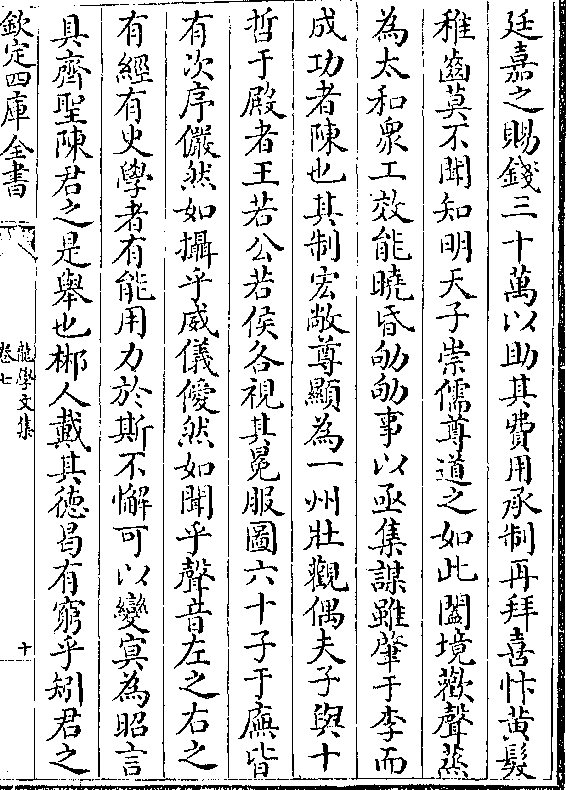 廷嘉之賜錢三十萬以助其費用承制再拜喜忭黄髮
稚齒莫不聞知明天子崇儒尊道之如此闔境歡聲蒸
為太和衆工效能曉昏劬劬事以亟集謀雖肇于李而
成功者陳也其制宏敞尊顯為一州壯觀偶夫子與十
哲于殿者王若公若侯各視其冕服圖六十子于廡皆
有次序儼然如攝乎威儀僾然如聞乎聲音左之右之
有經有史學者有能用力於斯不懈可以變冥為昭言
具齊聖陳君之是舉也郴人戴其德曷有窮乎矧君之
欽定四庫全書
龍學文集
卷七
十